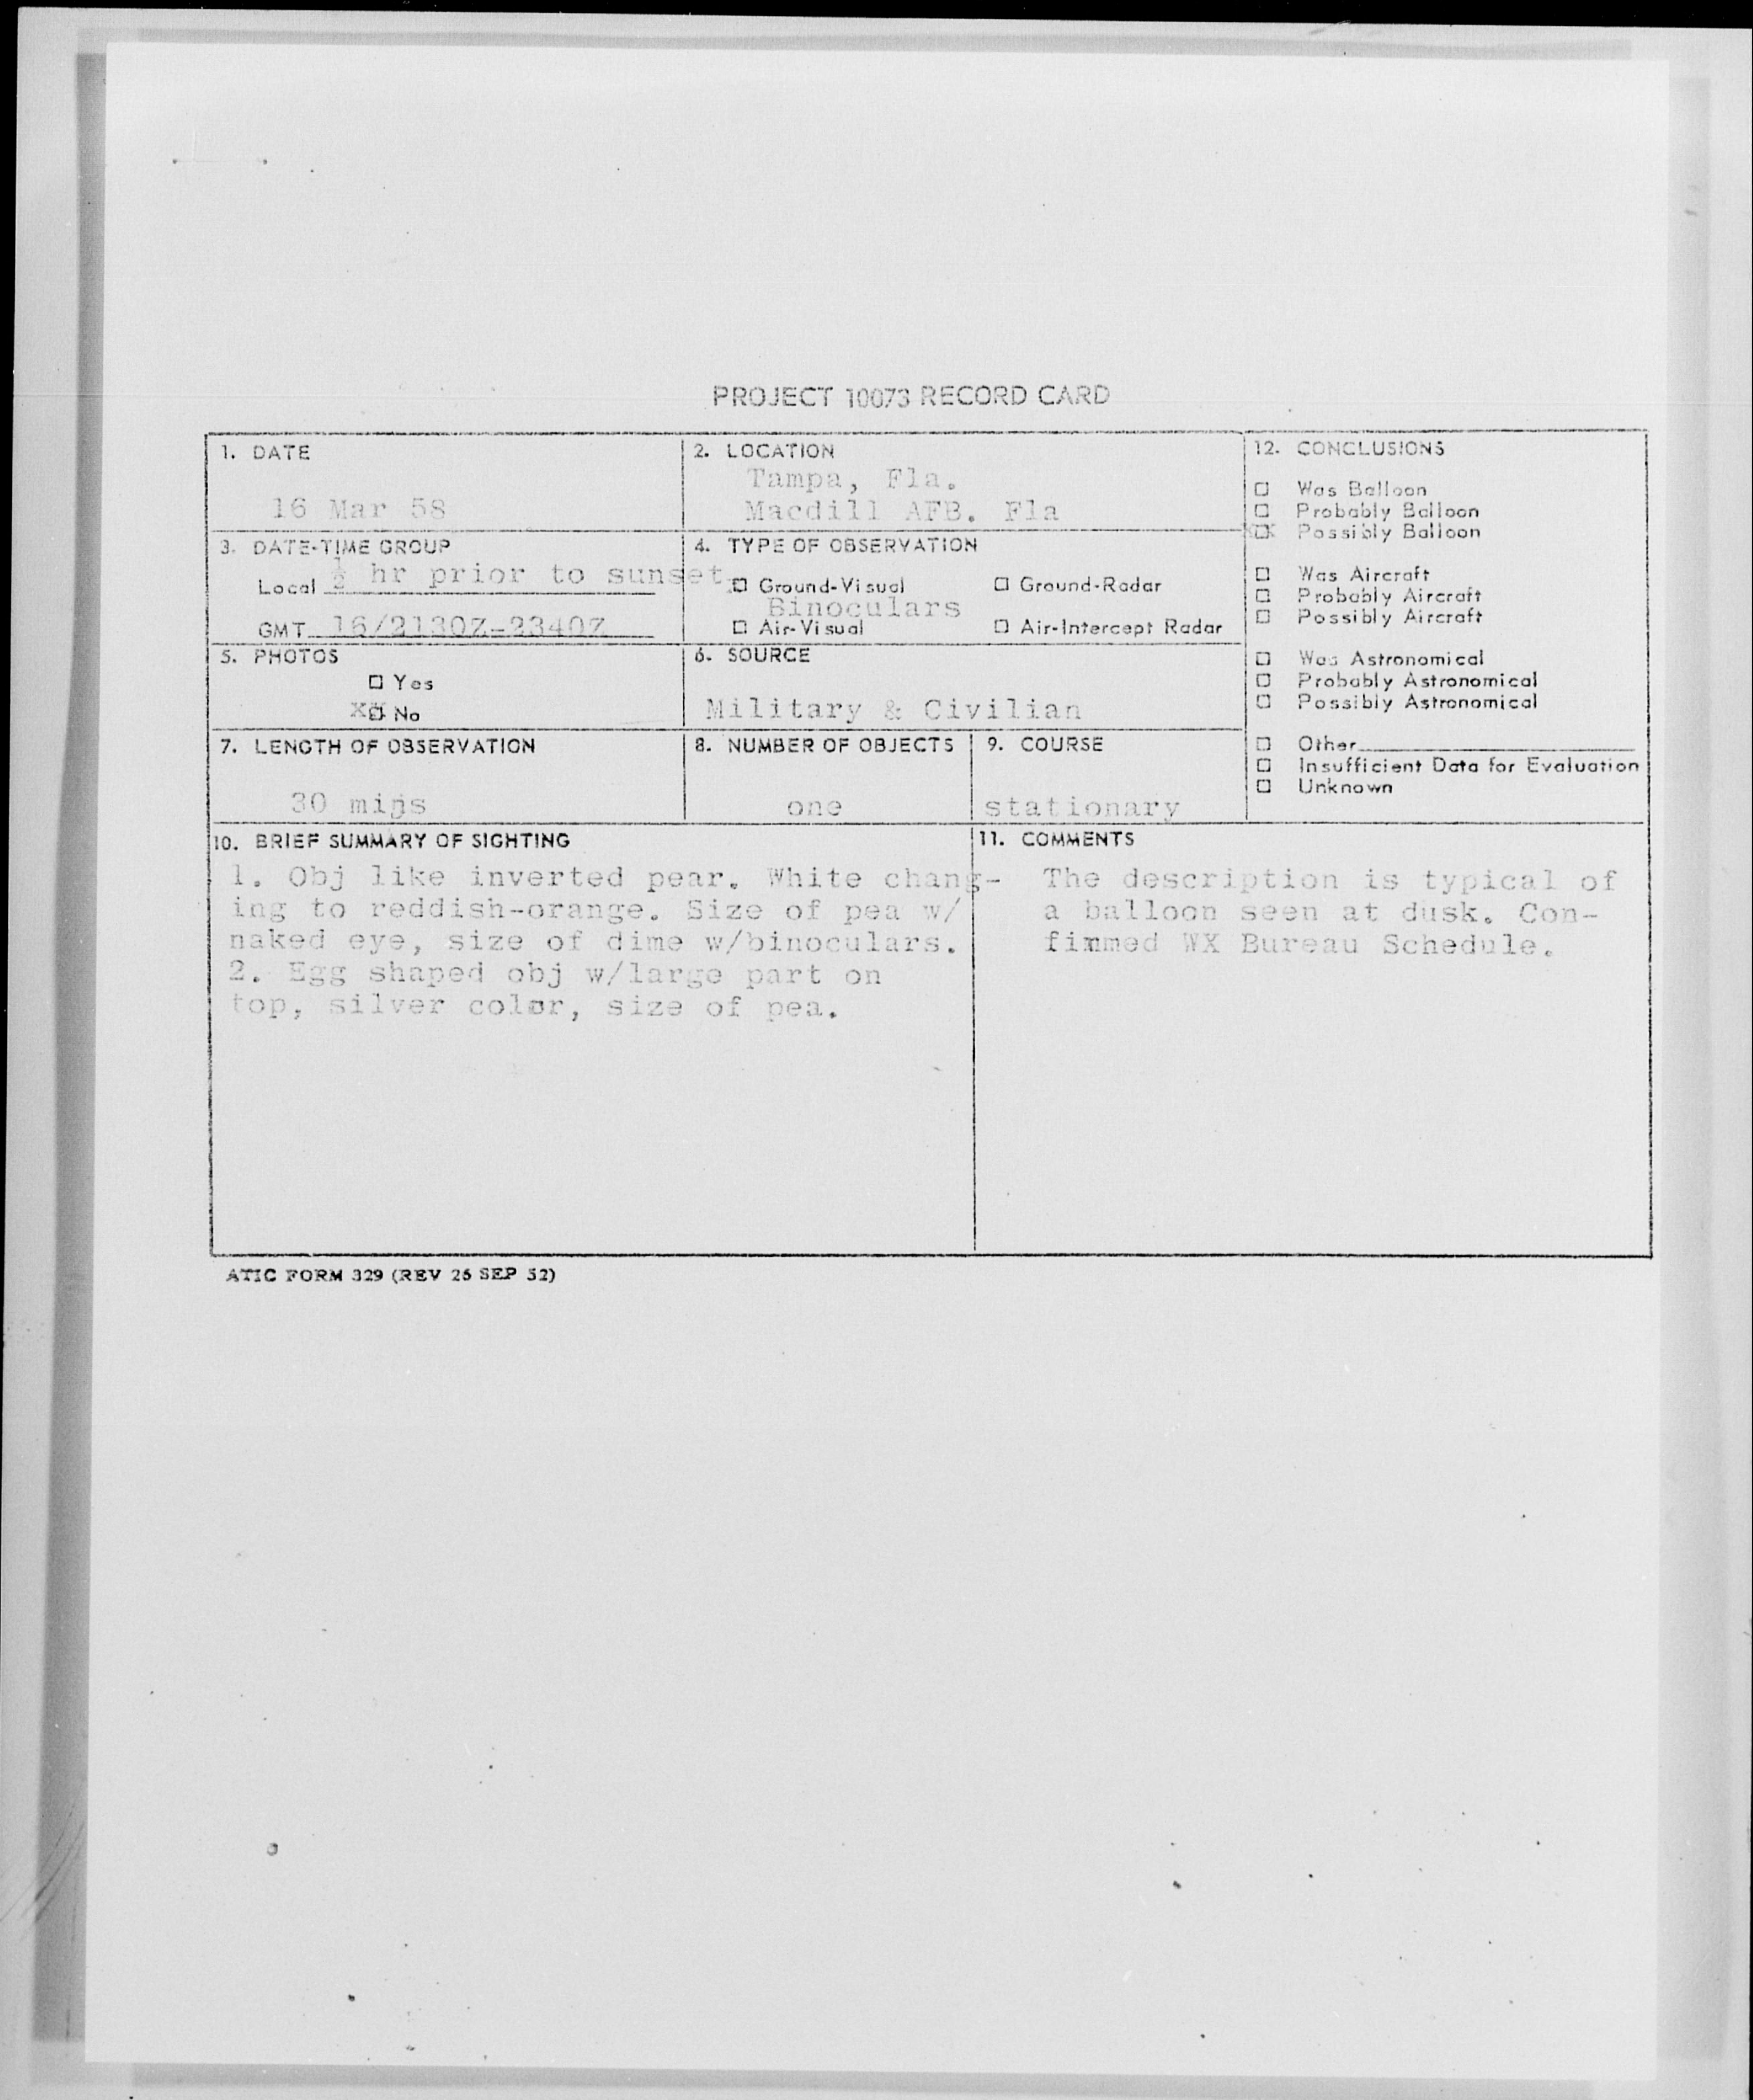 PROJECT 10073 RECORD CARD
1. DATE
16 Mar 58
2. LOCATION
Tampa, Fla.
Macdill AFB. Fla
3. DATE-TIME GROUP
Local ½ hr prior to sunset
GMT 16/2130Z-2340Z
4. TYPE OF OBSERVATION
☐ Ground-Visual ☐ Ground-Radar
Binoculars
☐ Air-Visual ☐ Air-Intercept Radar
5. PHOTOS
☐ Yes
XX☐ No
6. SOURCE
Military & Civilian
7. LENGTH OF OBSERVATION
30 mins
8. NUMBER OF OBJECTS
one
9. COURSE
stationary
12. CONCLUSIONS
☐ Was Balloon
☐ Probably Balloon
X☐X Possibly Balloon
☐ Was Aircraft
☐ Probably Aircraft
☐ Possibly Aircraft
☐ Was Astronomical
☐ Probably Astronomical
☐ Possibly Astronomical
☐ Other
☐ Insufficient Data for Evaluation
☐ Unknown
10. BRIEF SUMMARY OF SIGHTING
1. Obj like inverted pear. White chang-
ing to reddish-orange. Size of pea w/
naked eye, size of dime w/binoculars.
2. Egg shaped obj w/large part on
top, silver color, size of pea.
11. COMMENTS
The description is typical of
a balloon seen at dusk. Con-
firmed WX Bureau Schedule.
ATIC FORM 329 (REV 26 SEP 52)